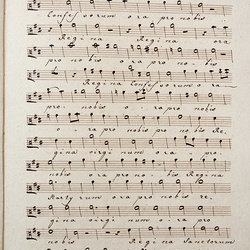 Confessorum ora pro nobis
Regina ora
pro nobis ora pro nobis
Regina Confessorum ora
pro nobis
ora pro nobis pro nobis Re-
gina virginum ora pro
nobis ora pro nobis Regina
Martyrum ora pro nobis re-
gina virginum ora pro
nobis Regina Sanctorum